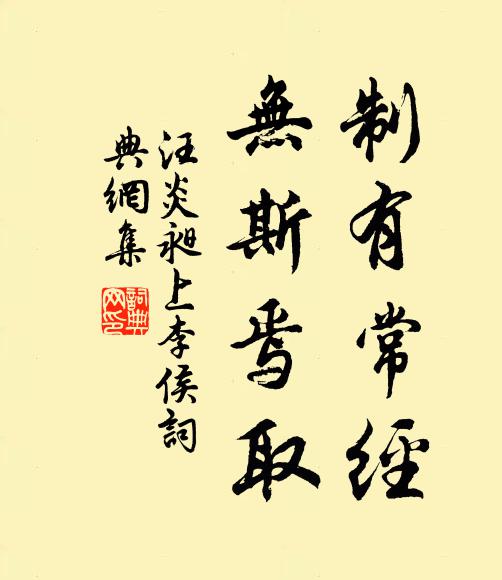 制有常經
無斯焉取
汪炎昶上李侯詞
典網集
詞典網印